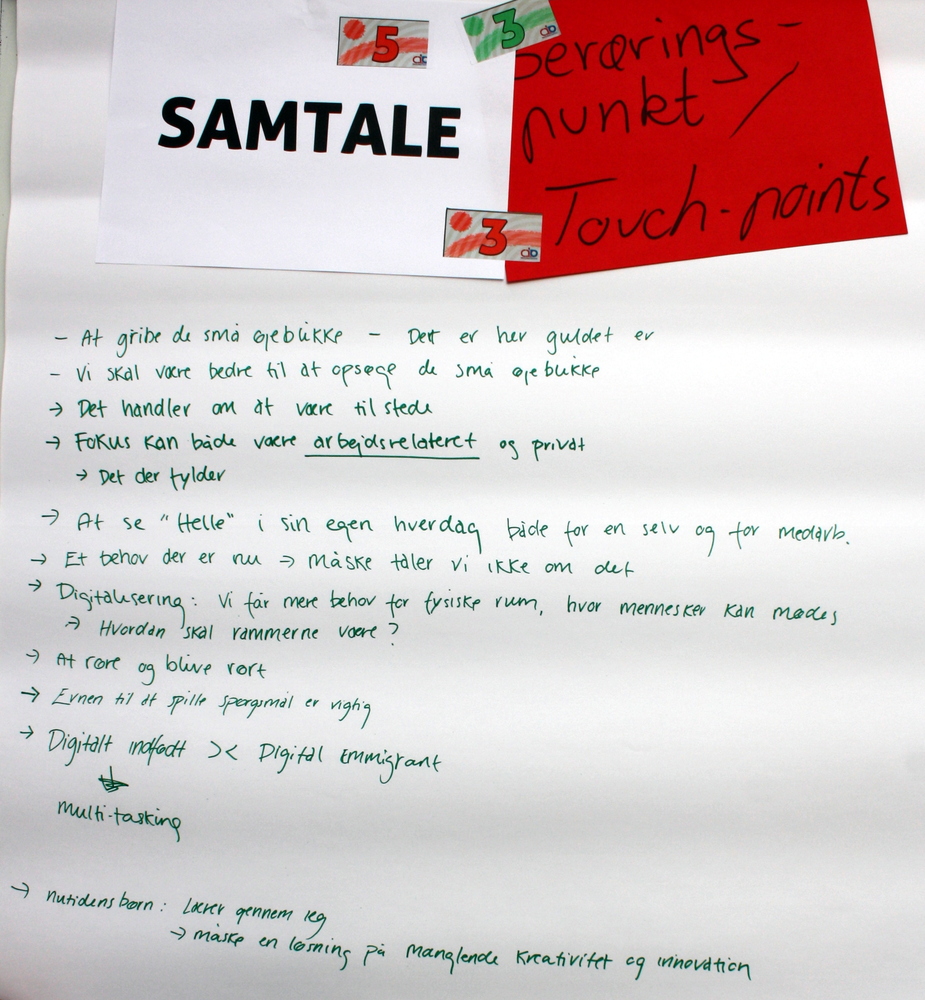 5
3
SAMTALE
berørings-
punkt /
3
Touch-points
- At gribe de små øjeblikke - Det er her guldet er
- Vi skal være bedre til at opsøge de små øjeblikke
→ Det handler om at være til stede
→ Fokus kan både være arbejdsrelateret og privat
→ Det der fylder
→ At se "Helle" i sin egen hverdag både for en selv og for medarb.
→ Et behov der er nu → måske taler vi ikke om det
→ Digitalisering: Vi får mere behov for fysiske rum, hvor mennesker kan mødes
→ Hvordan skal rammerne være?
→ At røre og blive rørt
→ Evnen til at spille spørgsmål er vigtig
→ Digitalt indfødt >< Digital Emmigrant
↓
Multi-tasking
→ Nutidens børn: Lærer gennem leg
→ måske en løsning på manglende kreativitet og innovation